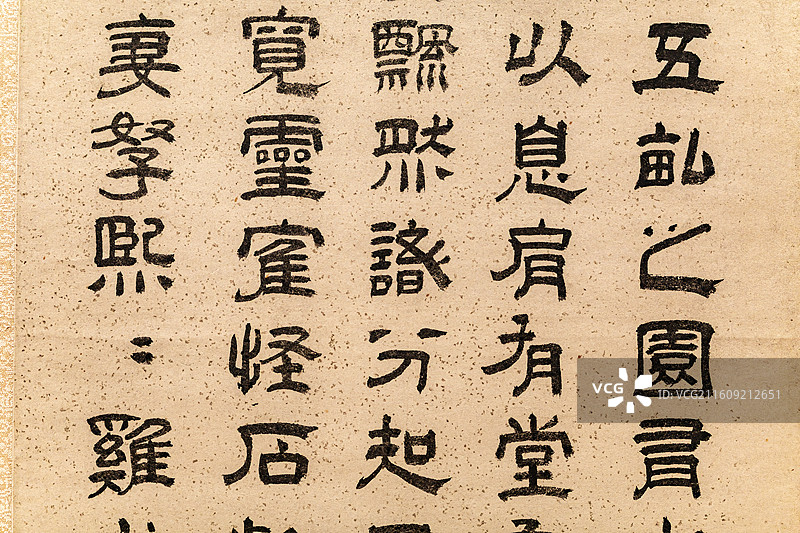 五畝之園有
以息肩有堂
飄然識分知
寬靈寉怪石
妻孥熙〻雞
VCG
ID:VCG211609212651